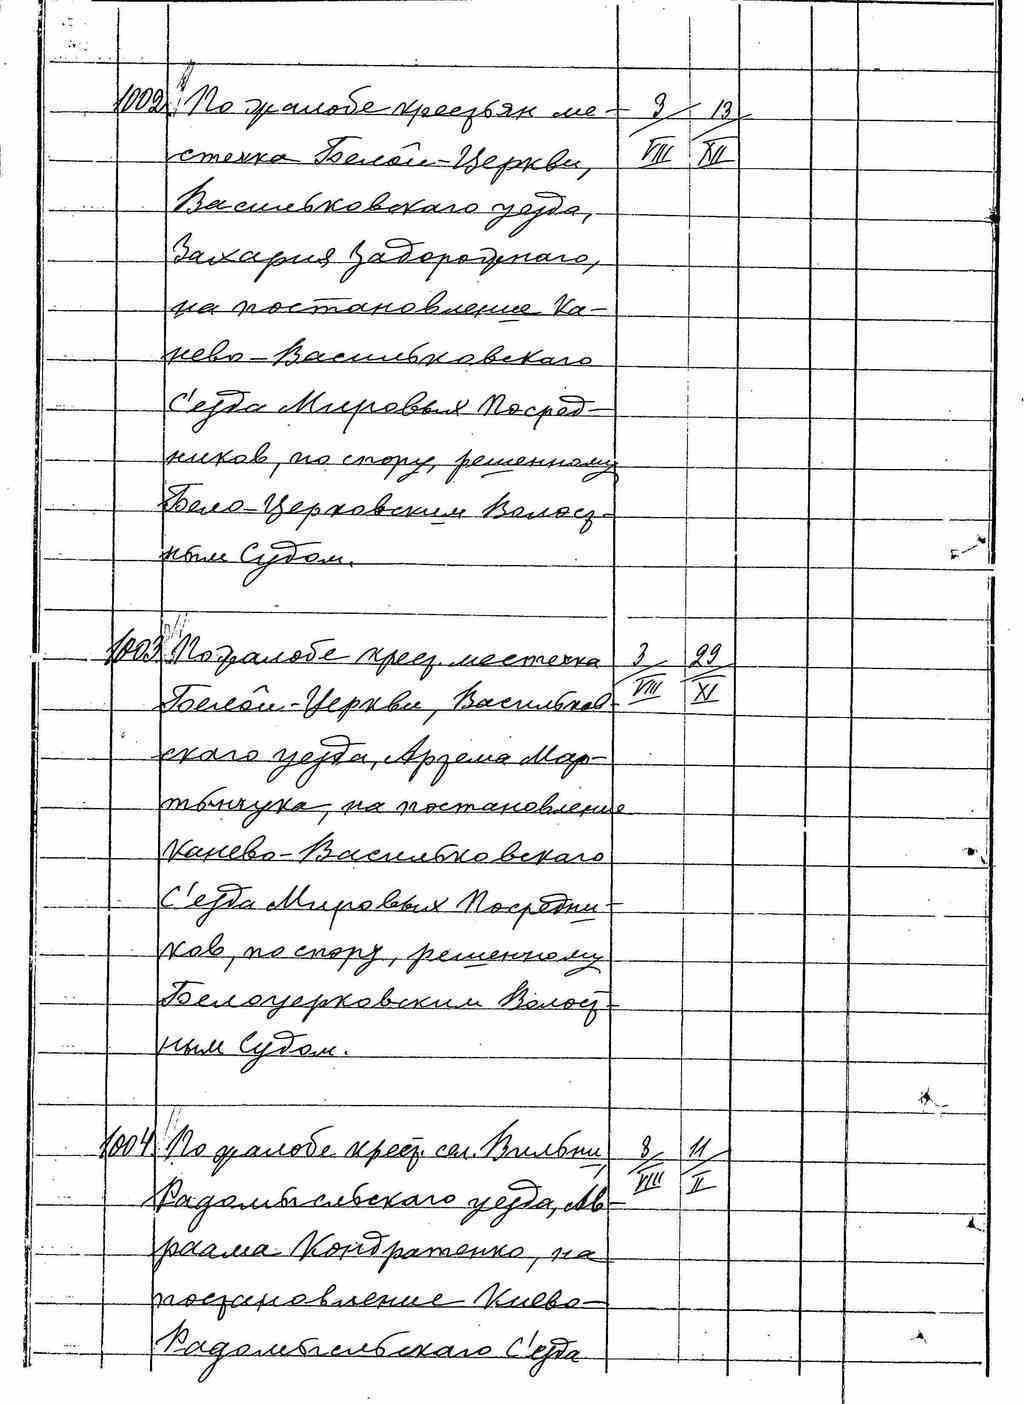 1002. По жалобе крестьян ме- 3/VIII 13/XII
стечка Белой-Церкви,
Васильковского уезда,
Захария Задорожнаго,
на постановление Ка-
нево-Васильковскаго
С'езда Мировых Посред-
ников, по спору, решенному
Бело-Церковским Волост-
ным Судом.
1003. По жалобе крест. местечка 3/VIII 29/XI
Белой-Церкви, Васильков-
скаго уезда, Артема Мар-
тынчука, на постановление
Канево-Васильковскаго
С'езда Мировых Посредни-
ков, по спору, решенному
Белоцерковским Волост-
ным Судом.
1004. По жалобе крест. сел. Вильни, 8/VIII 11/II
Радомысльскаго уезда, Ав-
раама Кондратенко, на
постановление Киево-
Радомысльскаго С'езда